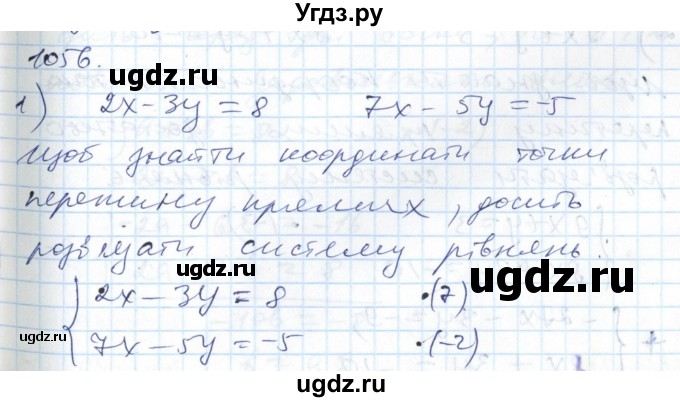 Угдз.ру
1056.
1) 2x-3y=8 7x-5y=-5
Щоб знайти координати точки
перетину прямих, досить
розв'язати систему рівнянь:
2x-3y=8 ·(7)
7x-5y=-5 ·(-2)
ugdz.ru
ugdz.ru
ugdz.ru
ugdz.ru
ugdz.ru
ugdz.ru
ugdz.ru
ugdz.ru
ugdz.ru